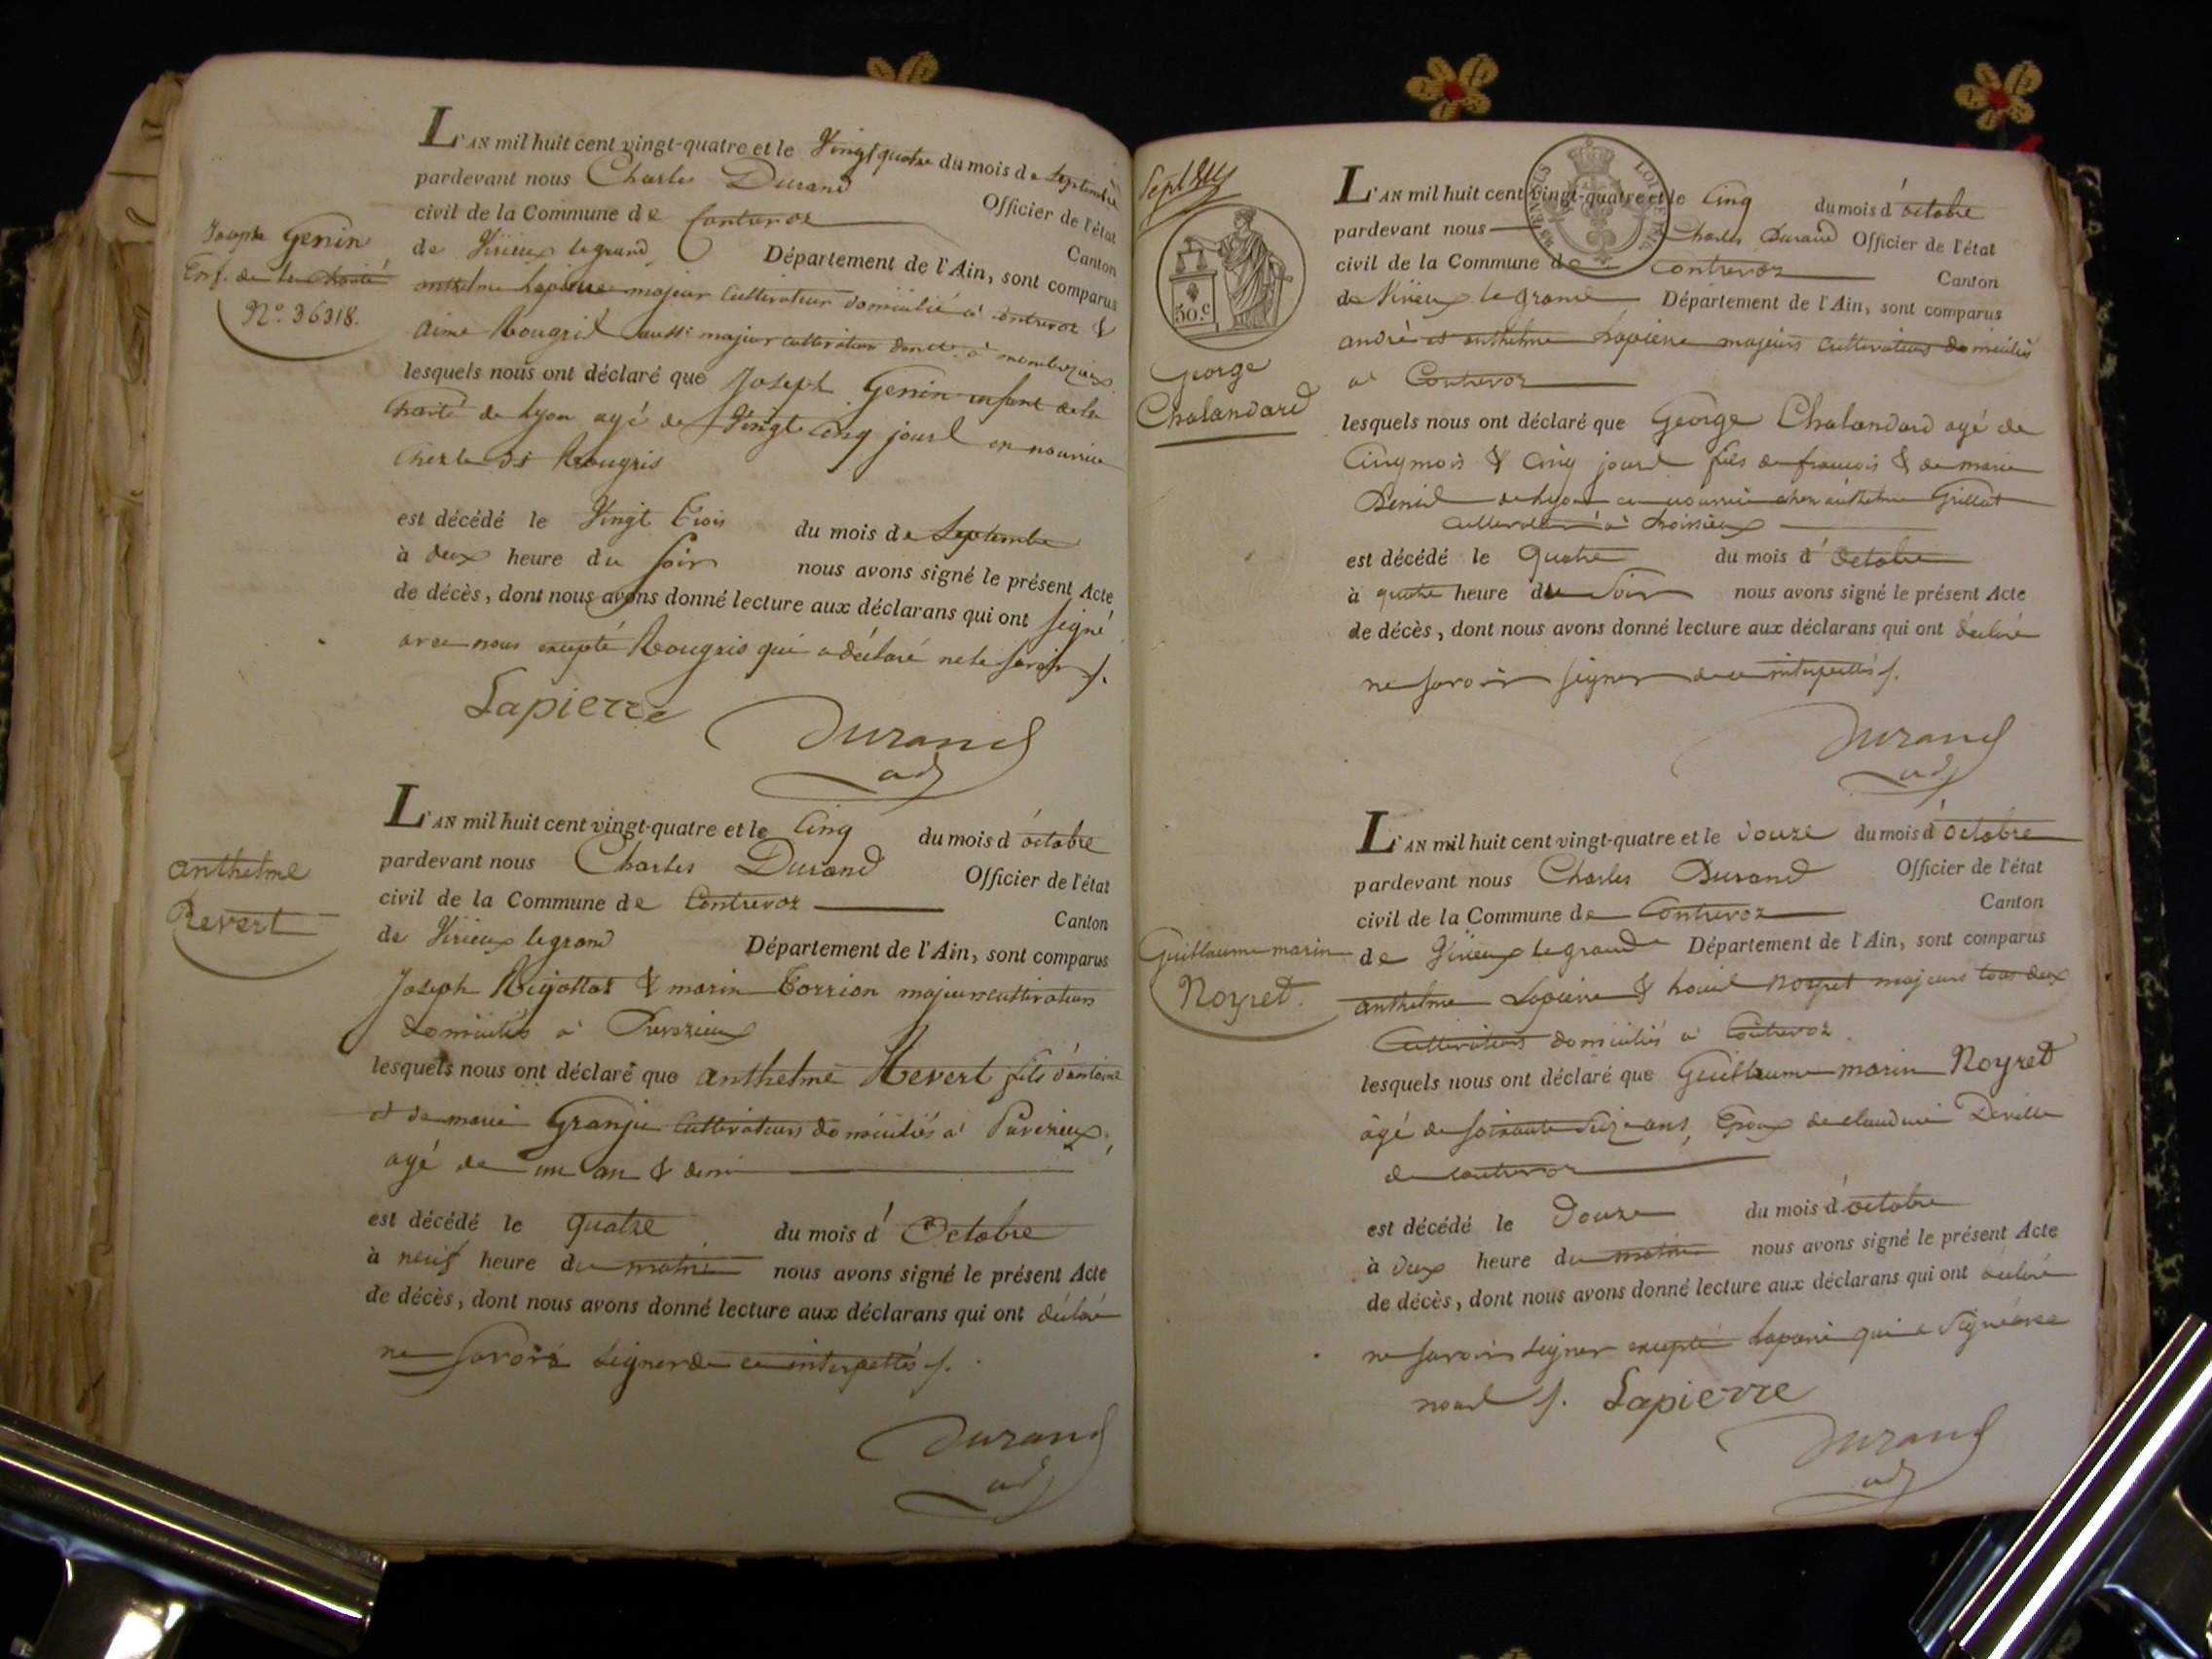 Joseph Genin
Enf. de la Charité
N.º 36318.
L'AN mil huit cent vingt-quatre et le Vingt quatre du mois de Septembre
pardevant nous Charles Durand Officier de l'état
civil de la Commune de Contrevoz Canton
de Virieux legrand Département de l'Ain, sont comparus
anthelme Lapierre majeur cultivateur domicilié à Contrevoz &
aimé Rougris aussi majeur cultivateur domct. à
lesquels nous ont déclaré que Joseph Genin enfant de la
Charité de Lyon agé de Vingt Cinq jours en nourrice
chez le dt Rougris
est décédé le Vingt Trois du mois de Septembre
à deux heure du Soir nous avons signé le présent Acte
de décès, dont nous avons donné lecture aux déclarans qui ont signé
avec nous excepté Rougris qui a déclaré ne le savoir /.
Lapierre Durand
adj
anthelme
Revert
L'AN mil huit cent vingt-quatre et le Cinq du mois d'octobre
pardevant nous Charles Durand Officier de l'état
civil de la Commune de Contrevoz Canton
de Virieux legrand Département de l'Ain, sont comparus
Joseph Rigottaz & marin Torrion majeurs cultivateurs
domiciliés à
lesquels nous ont déclaré que anthelme Revert fils d'antoine
et de marie Granju Cultivateurs domiciliés à
agé de un an & demi
est décédé le quatre du mois d'Octobre
à neuf heure du matin nous avons signé le présent Acte
de décès, dont nous avons donné lecture aux déclarans qui ont déclaré
ne savoir signer de ce interpellés /.
Durand
adj
LOI DE 1816
50.c
George
Chalandard
L'AN mil huit cent vingt-quatre et le Cinq du mois d'octobre
pardevant nous Charles Durand Officier de l'état
civil de la Commune de Contrevoz Canton
de Virieux legrand Département de l'Ain, sont comparus
andré et anthelme Lapierre majeurs cultivateurs domiciliés
à Contrevoz
lesquels nous ont déclaré que George Chalandard agé de
Cinq mois & Cinq jours fils de françois & de marie
Denis de Lyon en nourrice chez anthelme Grillet
cultivateur à
est décédé le quatre du mois d'octobre
à quatre heure du Soir nous avons signé le présent Acte
de décès, dont nous avons donné lecture aux déclarans qui ont déclaré
ne savoir signer de ce interpellés /.
Durand
adj
Guillaume marin
Noyret.
L'AN mil huit cent vingt-quatre et le douze du mois d'octobre
pardevant nous Charles Durand Officier de l'état
civil de la Commune de Contrevoz Canton
de Virieux legrand Département de l'Ain, sont comparus
anthelme Lapierre & Noyret majeurs tous deux
Cultivateurs domiciliés à Contrevoz.
lesquels nous ont déclaré que Guillaume marin Noyret
âgé de soixante Seize ans, Epoux de claudine Deville
de contrevoz
est décédé le Douze du mois d'octobre
à deux heure du matin nous avons signé le présent Acte
de décès, dont nous avons donné lecture aux déclarans qui ont déclaré
ne savoir signer excepté Lapierre qui a signé avec
nous /. Lapierre
Durand
adj